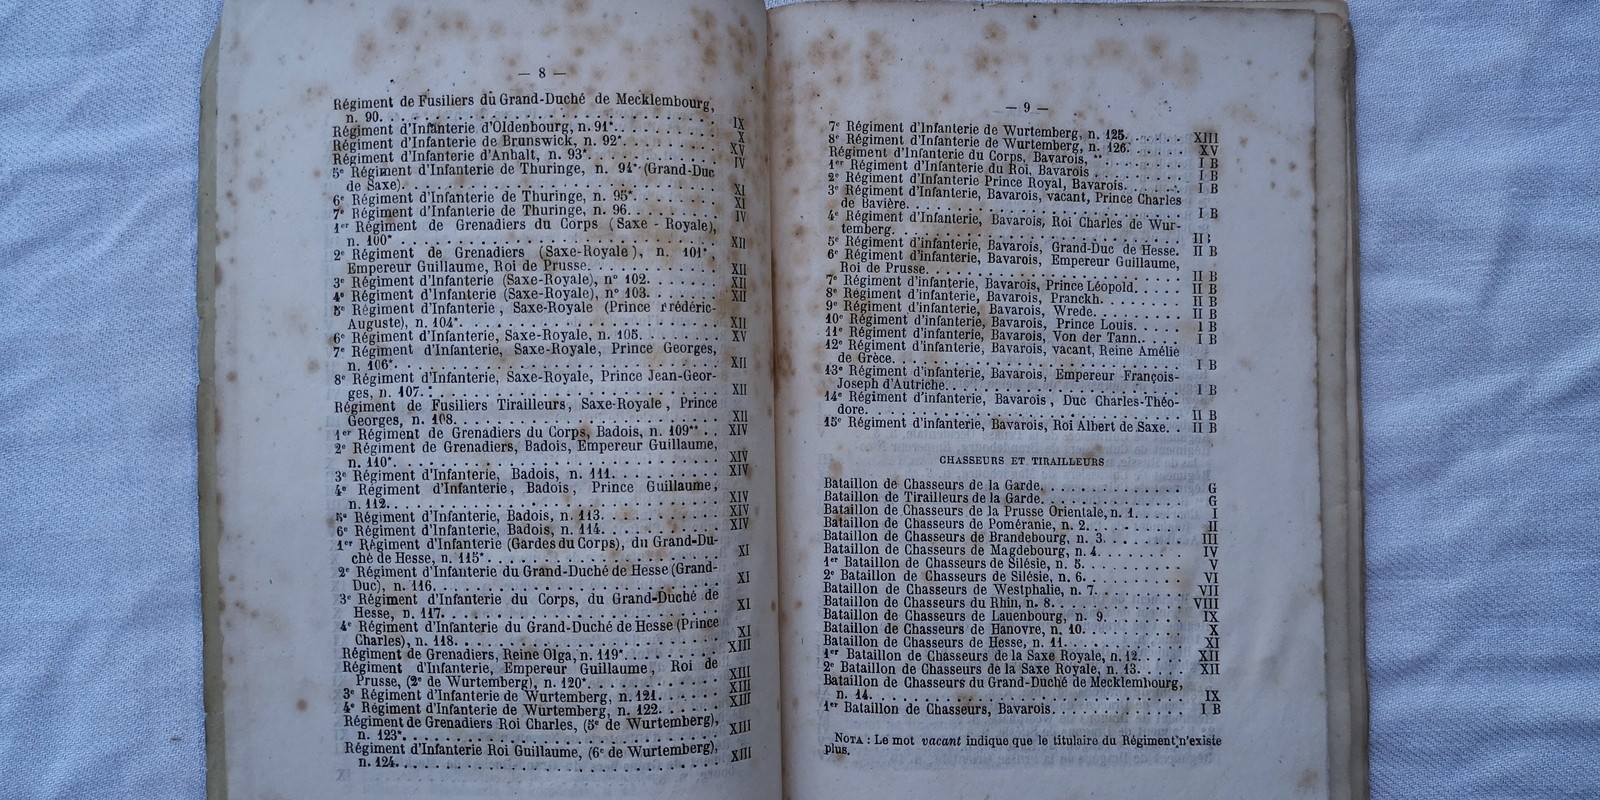 — 8 —
Régiment de Fusiliers du Grand-Duché de Mecklembourg,
n. 90. . . . . . . . . . . . . . . . . . . . . . . . IX
Régiment d'Infanterie d'Oldenbourg, n. 91*. . . . . . . . . X
Régiment d'Infanterie de Brunswick, n. 92* . . . . . . . . XV
Régiment d'Infanterie d'Anhalt, n. 93*. . . . . . . . . . . IV
5e Régiment d'Infanterie de Thuringe, n. 94* (Grand-Duc
de Saxe). . . . . . . . . . . . . . . . . . . . . . . XI
6e Régiment d'Infanterie de Thuringe, n. 95*. . . . . . . . XI
7e Régiment d'Infanterie de Thuringe, n. 96. . . . . . . . IV
1er Régiment de Grenadiers du Corps (Saxe-Royale),
n. 100* . . . . . . . . . . . . . . . . . . . . . . . XII
2e Régiment de Grenadiers (Saxe-Royale), n. 101*,
Empereur Guillaume, Roi de Prusse. . . . . . . . . . . XII
3e Régiment d'Infanterie (Saxe-Royale), n° 102. . . . . . . XII
4e Régiment d'Infanterie (Saxe-Royale), n° 103. . . . . . . XII
5e Régiment d'Infanterie, Saxe-Royale (Prince Frédéric-
Auguste), n. 104*. . . . . . . . . . . . . . . . . . . XII
6e Régiment d'Infanterie, Saxe-Royale, n. 105. . . . . . . XV
7e Régiment d'Infanterie, Saxe-Royale, Prince Georges,
n. 106*. . . . . . . . . . . . . . . . . . . . . . . . XII
8e Régiment d'Infanterie, Saxe-Royale, Prince Jean-Geor-
ges, n. 107. . . . . . . . . . . . . . . . . . . . . . XII
Régiment de Fusiliers Tirailleurs, Saxe-Royale, Prince
Georges, n. 108. . . . . . . . . . . . . . . . . . . . XII
1er Régiment de Grenadiers du Corps, Badois, n. 109** . . XIV
2e Régiment de Grenadiers, Badois, Empereur Guillaume,
n. 110*. . . . . . . . . . . . . . . . . . . . . . . . XIV
3e Régiment d'Infanterie, Badois, n. 111. . . . . . . . . . XIV
4e Régiment d'Infanterie, Badois, Prince Guillaume,
n. 112. . . . . . . . . . . . . . . . . . . . . . . . XIV
5e Régiment d'Infanterie, Badois, n. 113. . . . . . . . . . XIV
6e Régiment d'Infanterie, Badois, n. 114. . . . . . . . . . XIV
1er Régiment d'Infanterie (Gardes du Corps), du Grand-Du-
ché de Hesse, n. 115*. . . . . . . . . . . . . . . . . XI
2e Régiment d'Infanterie du Grand-Duché de Hesse (Grand-
Duc), n. 116. . . . . . . . . . . . . . . . . . . . . XI
3e Régiment d'Infanterie du Corps, du Grand-Duché de
Hesse, n. 117. . . . . . . . . . . . . . . . . . . . . XI
4e Régiment d'Infanterie du Grand-Duché de Hesse (Prince
Charles), n. 118. . . . . . . . . . . . . . . . . . . XI
Régiment de Grenadiers, Reine Olga, n. 119*. . . . . . . . XIII
Régiment d'Infanterie, Empereur Guillaume, Roi de
Prusse, (2e de Wurtemberg), n. 120*. . . . . . . . . . XIII
3e Régiment d'Infanterie de Wurtemberg, n. 121. . . . . . XIII
4e Régiment d'Infanterie de Wurtemberg, n. 122. . . . . . XIII
Régiment de Grenadiers Roi Charles, (5e de Wurtemberg),
n. 123*. . . . . . . . . . . . . . . . . . . . . . . . XIII
Régiment d'Infanterie Roi Guillaume, (6e de Wurtemberg),
n. 124. . . . . . . . . . . . . . . . . . . . . . . . XIII
— 9 —
7e Régiment d'Infanterie de Wurtemberg, n. 125. . . . . . XIII
8e Régiment d'Infanterie de Wurtemberg, n. 126. . . . . . XV
Régiment d'Infanterie du Corps, Bavarois, ** . . . . . . . I B
1er Régiment d'Infanterie du Roi, Bavarois . . . . . . . . I B
2e Régiment d'Infanterie Prince Royal, Bavarois. . . . . . I B
3e Régiment d'Infanterie, Bavarois, vacant, Prince Charles
de Bavière. . . . . . . . . . . . . . . . . . . . . . I B
4e Régiment d'Infanterie, Bavarois, Roi Charles de Wur-
temberg. . . . . . . . . . . . . . . . . . . . . . . II B
5e Régiment d'infanterie, Bavarois, Grand-Duc de Hesse. II B
6e Régiment d'infanterie, Bavarois, Empereur Guillaume,
Roi de Prusse. . . . . . . . . . . . . . . . . . . . . II B
7e Régiment d'infanterie, Bavarois, Prince Léopold. . . . . II B
8e Régiment d'infanterie, Bavarois, Pranckh. . . . . . . . II B
9e Régiment d'infanterie, Bavarois, Wrede. . . . . . . . . II B
10e Régiment d'infanterie, Bavarois, Prince Louis. . . . . . I B
11e Régiment d'infanterie, Bavarois, Von der Tann. . . . . I B
12e Régiment d'infanterie, Bavarois, vacant, Reine Amélie
de Grèce. . . . . . . . . . . . . . . . . . . . . . . I B
13e Régiment d'infanterie, Bavarois, Empereur François-
Joseph d'Autriche. . . . . . . . . . . . . . . . . . . I B
14e Régiment d'infanterie, Bavarois, Duc Charles-Théo-
dore. . . . . . . . . . . . . . . . . . . . . . . . . II B
15e Régiment d'infanterie, Bavarois, Roi Albert de Saxe. . II B
CHASSEURS ET TIRAILLEURS
Bataillon de Chasseurs de la Garde. . . . . . . . . . . . . G
Bataillon de Tirailleurs de la Garde. . . . . . . . . . . . . G
Bataillon de Chasseurs de la Prusse Orientale, n. 1. . . . . I
Bataillon de Chasseurs de Poméranie, n. 2. . . . . . . . . II
Bataillon de Chasseurs de Brandebourg, n. 3. . . . . . . . III
Bataillon de Chasseurs de Magdebourg, n. 4. . . . . . . . IV
1er Bataillon de Chasseurs de Silésie, n. 5. . . . . . . . . V
2e Bataillon de Chasseurs de Silésie, n. 6. . . . . . . . . . VI
Bataillon de Chasseurs de Westphalie, n. 7. . . . . . . . . VII
Bataillon de Chasseurs du Rhin, n. 8. . . . . . . . . . . . VIII
Bataillon de Chasseurs de Lauenbourg, n. 9. . . . . . . . IX
Bataillon de Chasseurs de Hanovre, n. 10. . . . . . . . . . X
Bataillon de Chasseurs de Hesse, n. 11. . . . . . . . . . . XI
1er Bataillon de Chasseurs de la Saxe Royale, n. 12. . . . . XII
2e Bataillon de Chasseurs de la Saxe Royale, n. 13. . . . . XII
Bataillon de Chasseurs du Grand-Duché de Mecklembourg,
n. 14. . . . . . . . . . . . . . . . . . . . . . . . . IX
1er Bataillon de Chasseurs, Bavarois. . . . . . . . . . . . I B
NOTA : Le mot vacant indique que le titulaire du Régiment n'existe
plus.